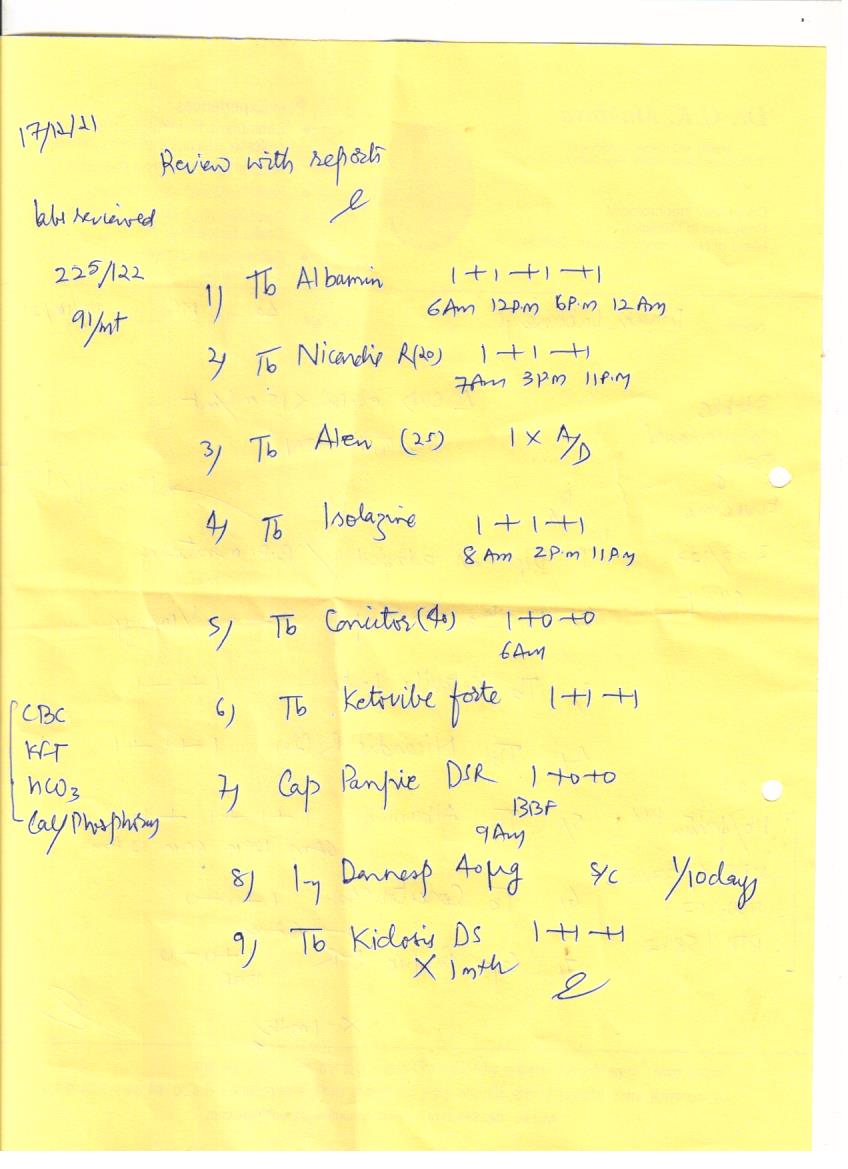 17/12/21
Review with reports
labs reviewed
225/122
91/mt
1) Tb Albamin 1+1+1+1
6Am 12pm 6P.m 12Am
2) Tb Nicardie R(20) 1+1+1
7Am 3pm 11P.m
3) Tb Alen (25) 1 x A/D
4) Tb Isolazine 1+1+1
8 Am 2P.m 11P.m
5) Tb (40) 1+0+0
6Am
6) Tb Ketovibe forte 1+1+1
CBC
KFT
hCO3
Cal/Phosphorus
7) Cap DSR 1+0+0
BBF
9Am
8) 40µg S/C 1/10days
9) Tb DS 1+1+1
X 1mth